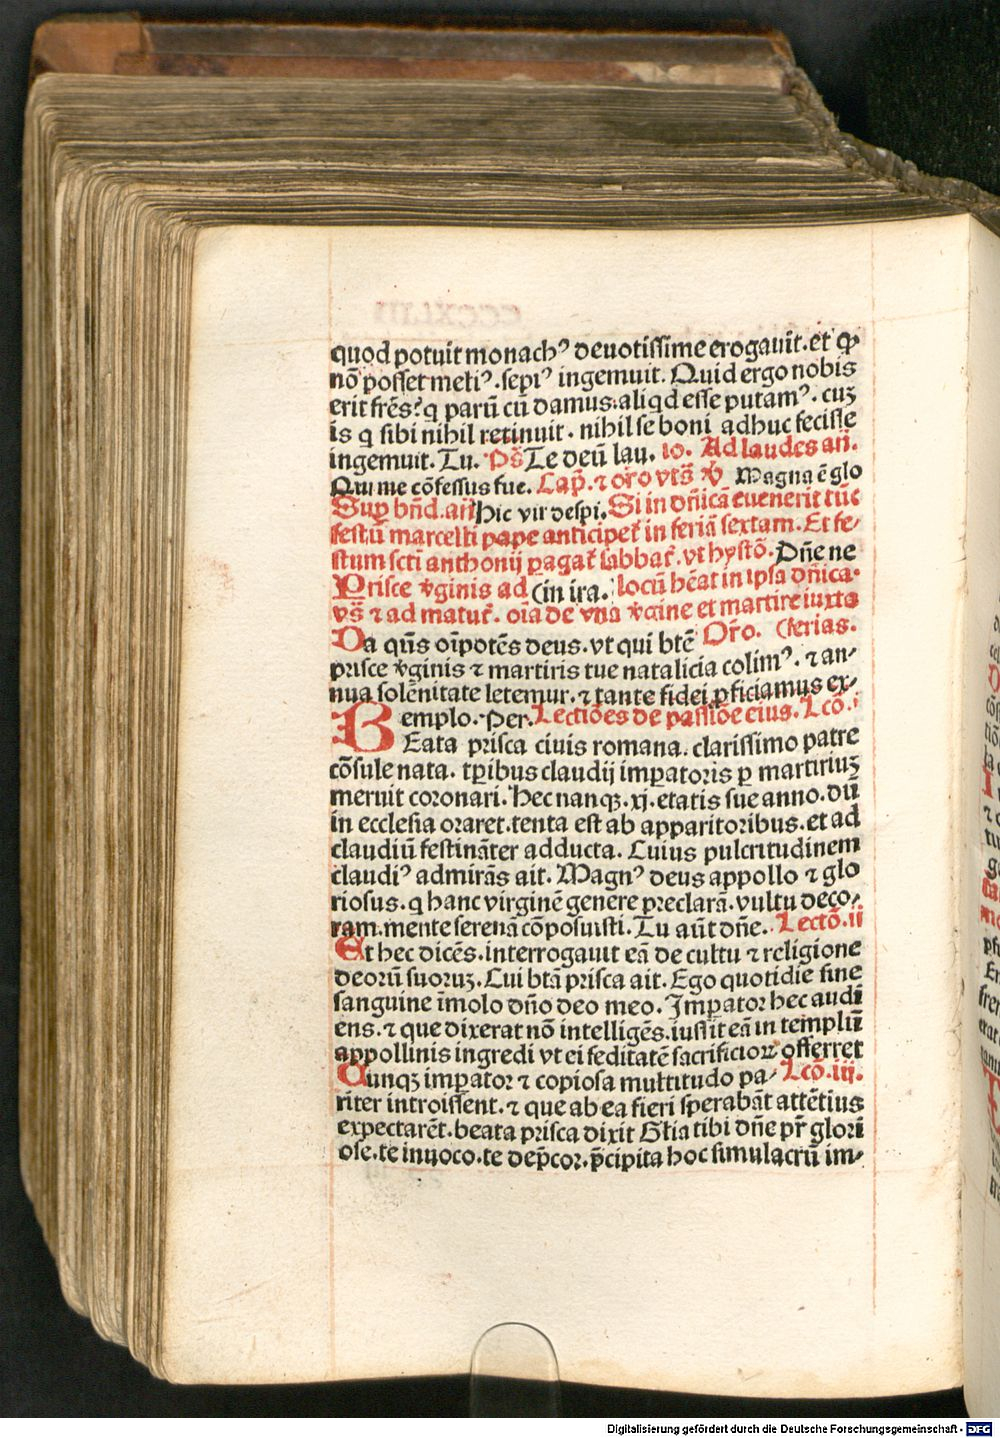 quod potuit monachꝰ deuotissime erogauit. et ꝙ
nō posset meliꝰ. sepiꝰ ingemuit. Quid ergo nobis
erit frēs? q parū cū damus. aliqd esse putamꝰ. cuꝫ
is q sibi nihil retinuit. nihil se boni adhuc fecisse
ingemuit. Tu. Ps̄ Te deū lau. io. Ad laudes añ.
Qui me cōfessus fue. Cap̄. ⁊ oro vts̄ Magna ē glo
Sup bn̄d. añ Hic vir despi. Si in dn̄icā euenerit tūc
festū marcelli pape anticipet᷑ in feriā sextam. Et fe⸗
stum scti anthonij pagat᷑ sabbat᷑. vt hystō. Dn̄e ne
Prisce v̄ginis ad (in ira. locū hēat in ipsa dn̄ica.
vs̄ ⁊ ad matut᷑. oīa de vna v̄gine et martire iuxta
Da qūs oīpotēs deus. vt qui btē Or̄o. (ferias.
prisce v̄ginis ⁊ martiris tue natalicia colimꝰ. ⁊ an⸗
nua solēnitate letemur. ⁊ tante fidei ꝓficiamus ex⸗
emplo. Per. Lectiōes de passiōe eius. Lcō. i
BEata prisca ciuis romana. clarissimo patre
cōsule nata. tꝑibus claudij imꝑatoris ꝑ martiriuꝫ
meruit coronari. Hec nanqꝫ. xj. etatis sue anno. dū
in ecclesia oraret. tenta est ab apparitoribus. et ad
claudiū festināter adducta. Cuius pulcritudinem
claudiꝰ admirās ait. Magnꝰ deus appollo ⁊ glo
riosus. q hanc virginē genere preclarā. vultu deco⸗
ram. mente serenā cōposuisti. Tu aūt dn̄e. Lectō. ii
Et hec dicēs. interrogauit eā de cultu ⁊ religione
deorū suoruꝫ. Cui btā prisca ait. Ego quotidie sine
sanguine īmolo dn̄o deo meo. Imꝑator hec audi
ens. ⁊ que dixerat nō intelligēs. iussit eā in templū
appollinis ingredi vt ei feditatē sacrificioꝝ offerret
Cunqꝫ imꝑator ⁊ copiosa multitudo pa⸗ Lcō. iii.
riter introissent. ⁊ que ab ea fieri sperabāt attētius
expectarēt. beata prisca dixit Gl̄ia tibi dn̄e pr̄ glori
ose. te inuoco. te dep̄cor. p̄cipita hoc simulacrū im⸗
Digitalisierung gefördert durch die Deutsche Forschungsgemeinschaft - DFG